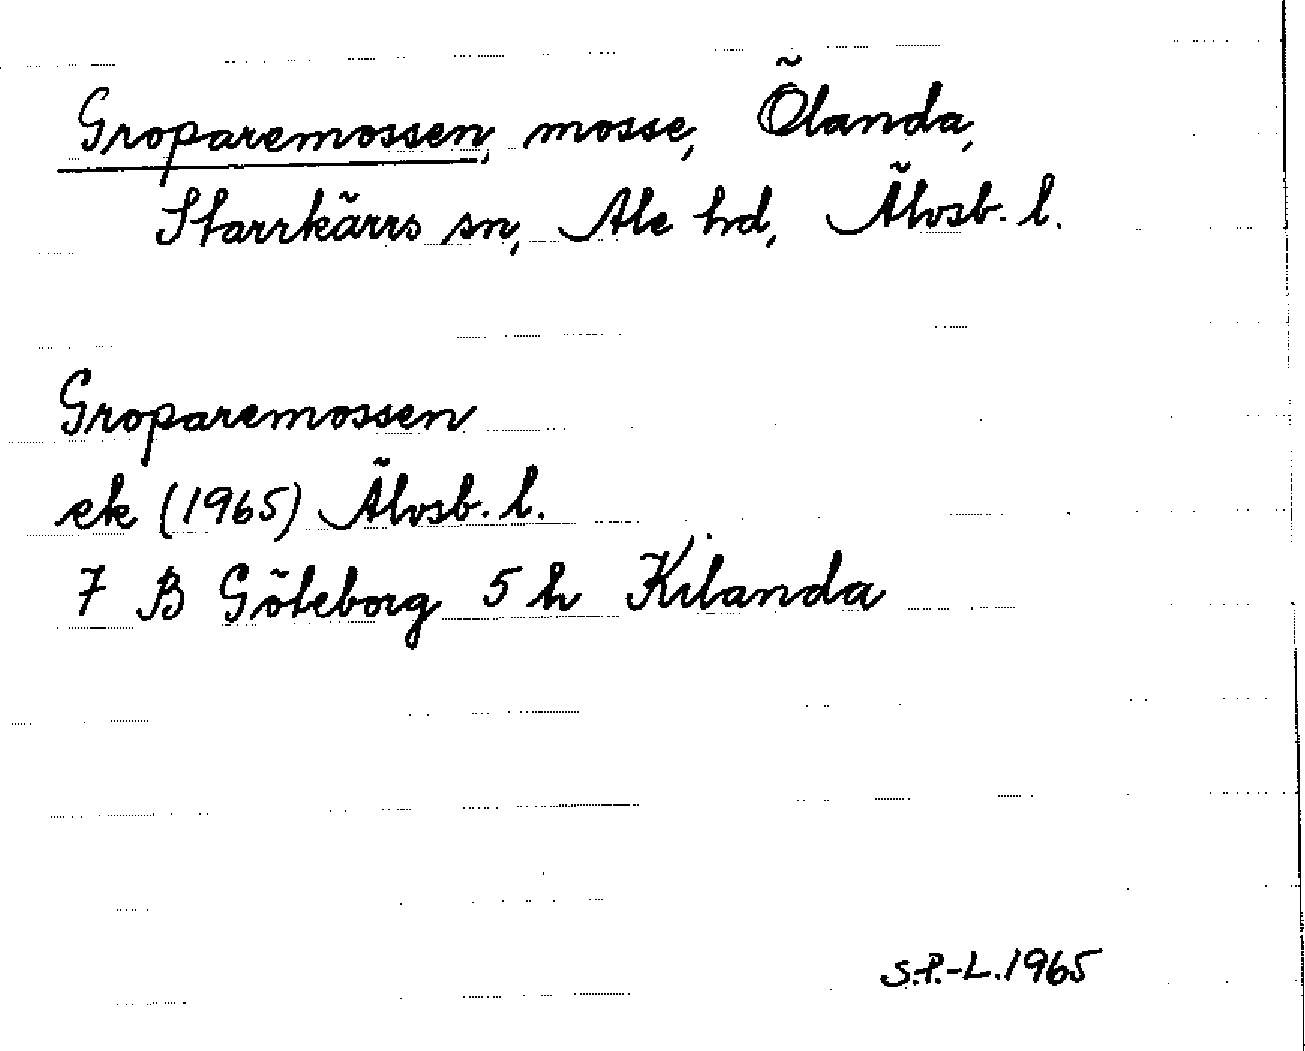 Groparemossen, mosse, Ölanda,
Starrkärrs sn, Ale hd, Älvsb. l.
Groparemossen
ek (1965) Älvsb. l.
7 B Göteborg 5 h Kilanda
S.P.-L. 1965